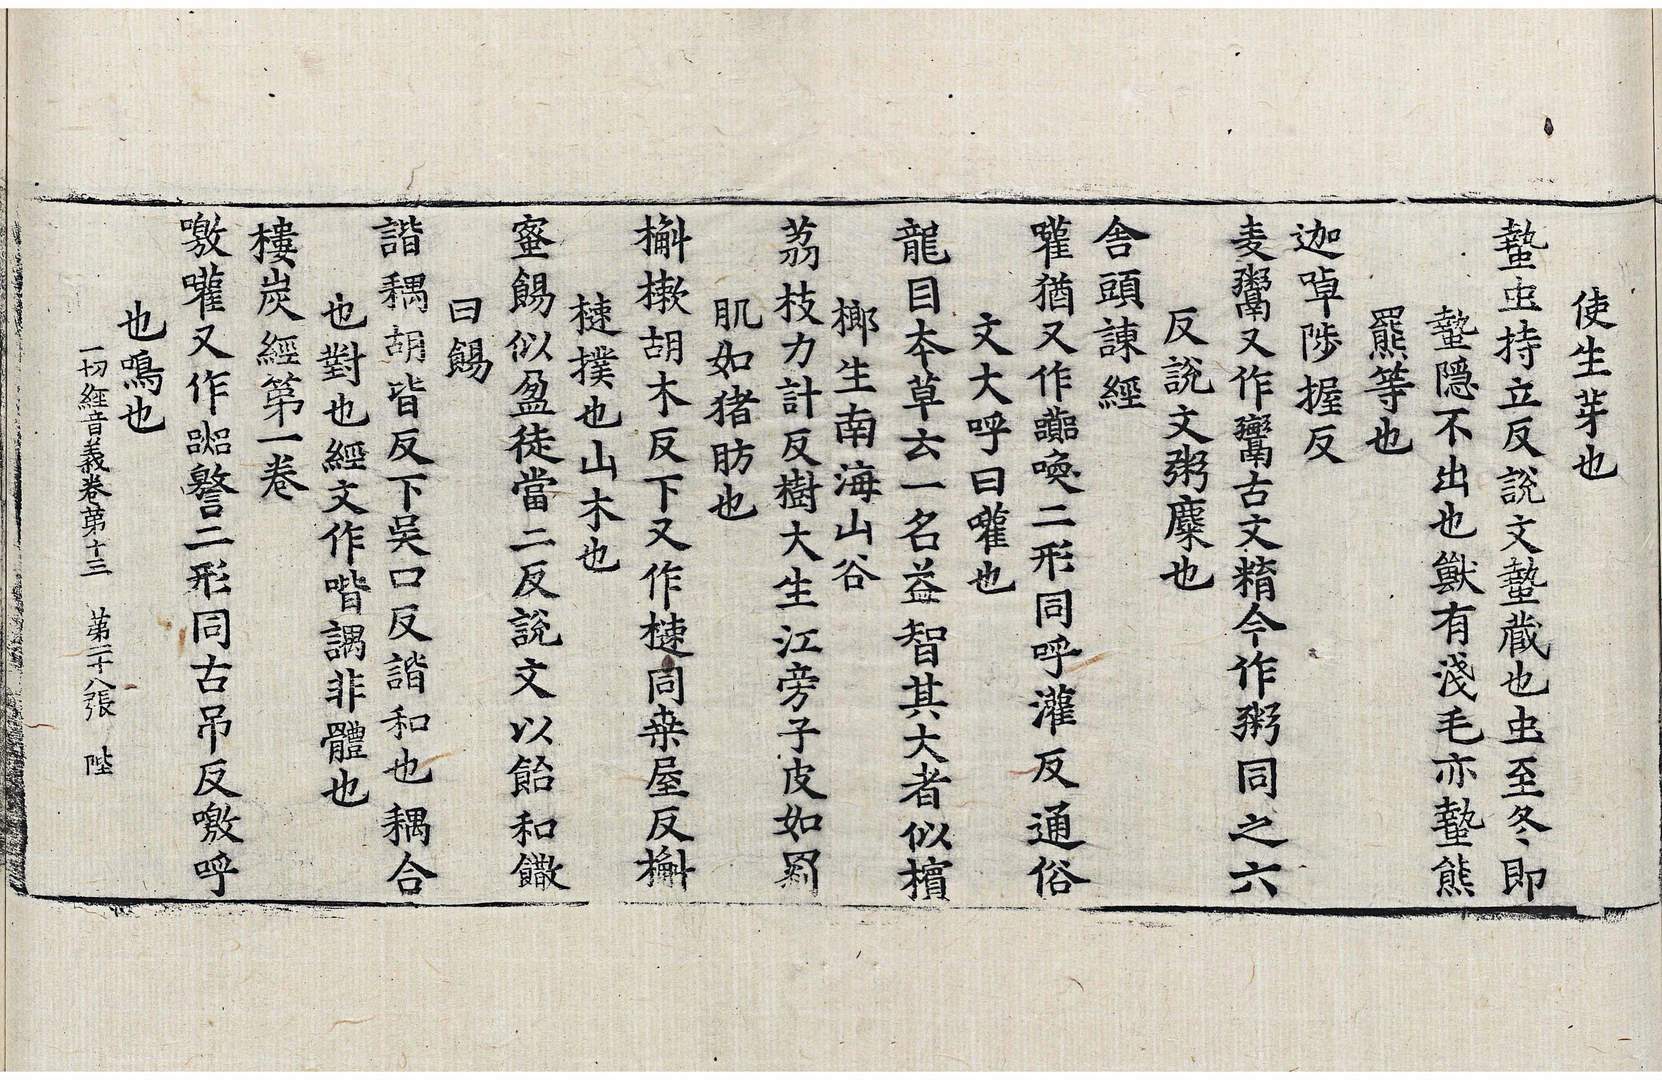 使生芽也
蟄虫持立反說文蟄藏也虫至冬即
蟄隱不出也獸有淺毛亦蟄熊
羆等也
迦啅陟握反
麦鬻又作𩱱古文精今作粥同之六
反說文粥糜也
舎頭諫經
嚾猶又作讙喚二形同呼灌反通俗
文大呼曰嚾也
龍目本草云一名益智其大者似檳
榔生南海山谷
荔枝力計反樹大生江旁子皮如𦋺
肌如猪肪也
槲樕胡木反下又作楝同桒屋反槲
楝撲也山木也
蜜餳似盈徒當二反說文以飴和饊
曰餳
諧耦胡皆反下吳口反諧和也耦合
也對也經文作喈調非體也
樓炭經第一卷
噭嚾又作警二形同古吊反噭呼
也鳴也
一切經音義卷苐十三 苐二十八張 陛